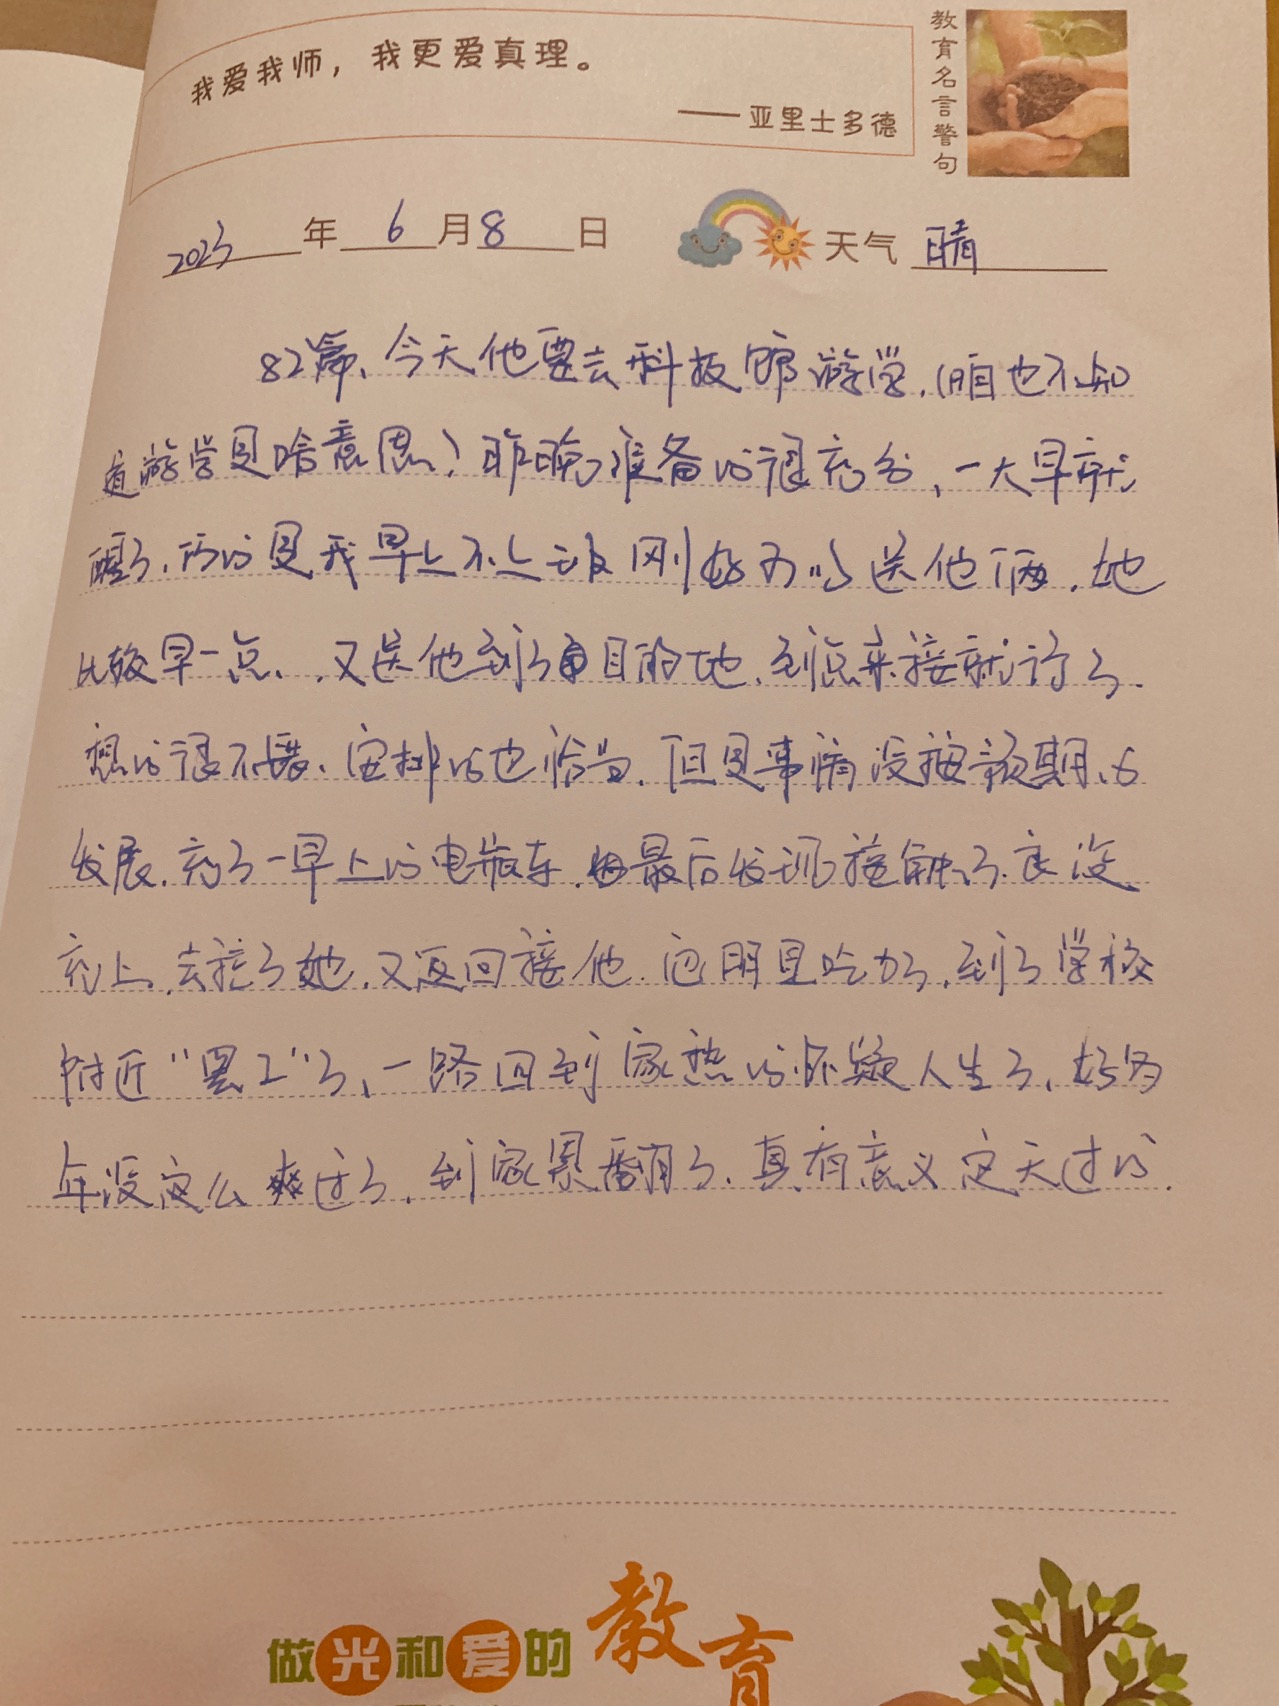 我爱我师，我更爱真理。
——亚里士多德
教育名言警句
2023年6月8日 天气 晴
82篇、今天他要去科技馆游学.(咱也不知
道游学是啥意思)昨晚准备的很充分、一大早就
醒了.巧的是我早上不上班刚好可以送他俩.她
比较早一点、.又送他到了目的地.到点来接就行了.
想的很不错、安排的也恰当.但是事情没按预期的
发展.充了一早上的电瓶车.最后发现接触不良没
充上.去接了她.又返回接他.它明显吃力了.到了学校
附近“罢工”了、一路回到家热的怀疑人生了、好多
年没这么爽过了.到家累翻了.真有意义这天过的.
做光和爱的教育